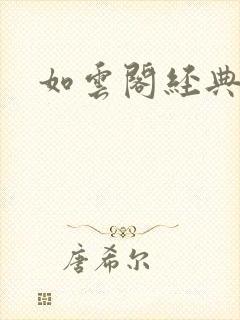 如雲閣經典
唐希尔